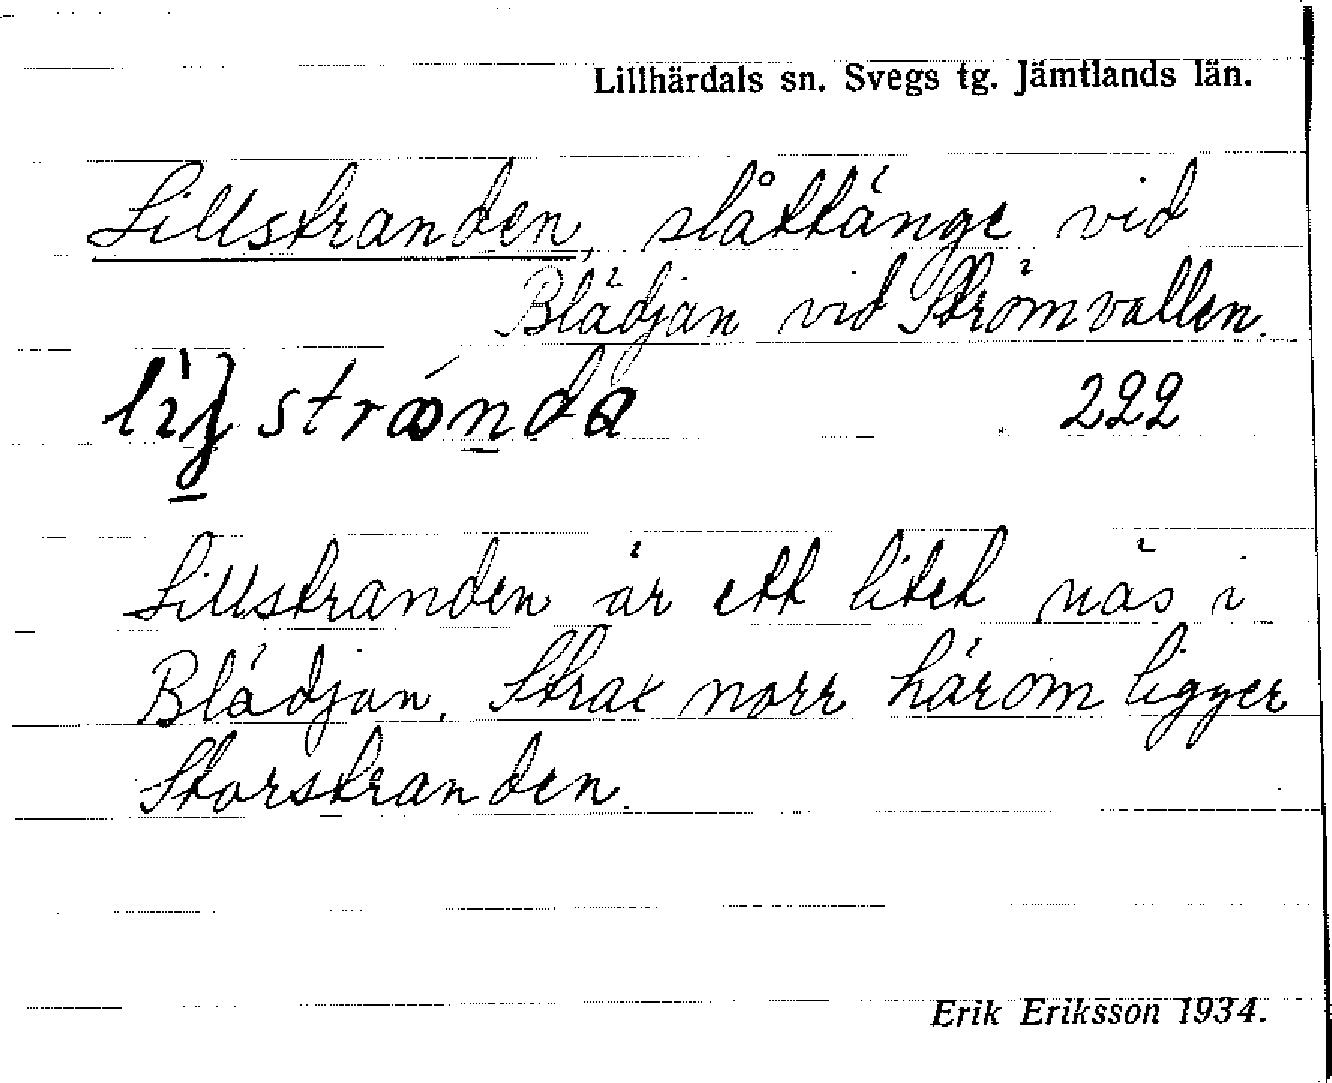 Lillhärdals sn. Svegs tg. Jämtlands län.
Lillstranden, slåttänge vid
Blädjan vid Strömvallen.
222
Lillstranden är ett litet näs i
Blädjan. Strax norr härom ligger
Storstranden.
Erik Eriksson 1934.